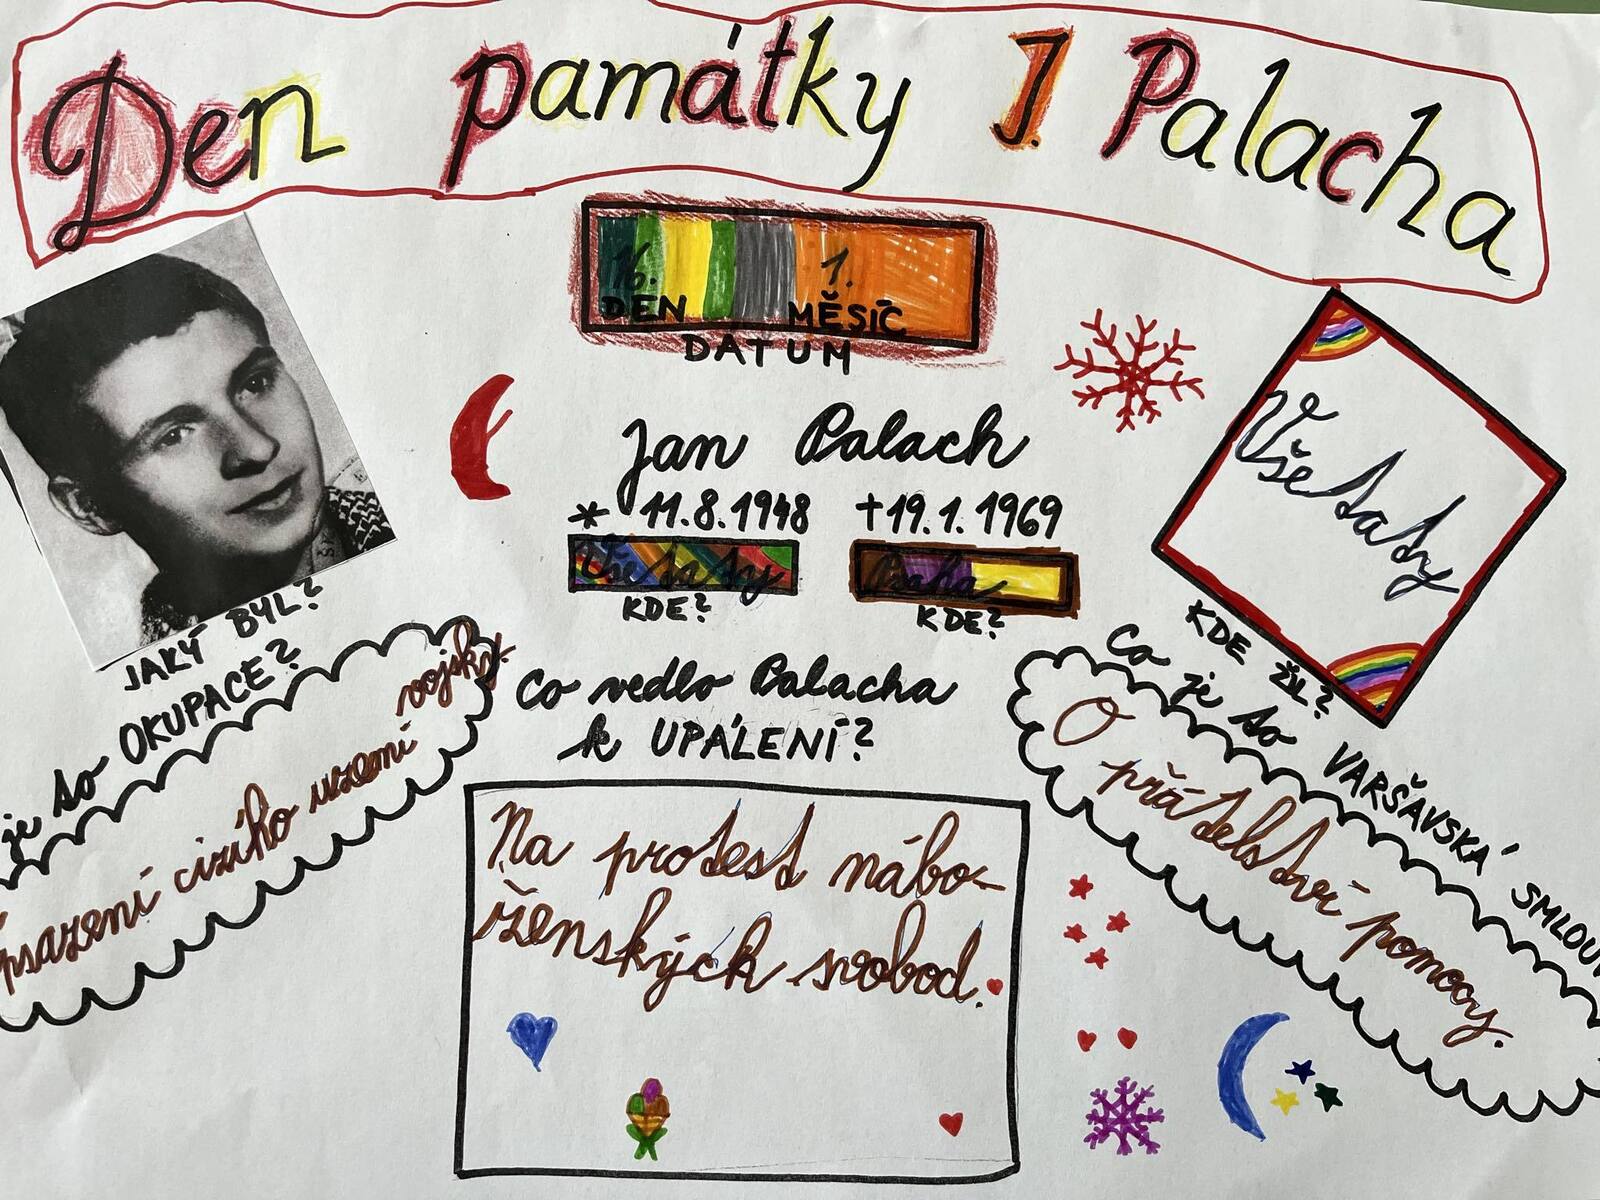 Den památky J. Palacha
16. 1.
DEN MĚSÍC
DATUM
Jan Palach
* 11.8.1948 +19.1.1969
Všetaty Praha
KDE? KDE?
Všetaty
KDE ŽIL?
JAKÝ BYL?
je to OKUPACE?
obsazení cizího uzemí vojsky.
Co vedlo Palacha
k UPÁLENÍ?
Na protest nábo-
ženských svobod.
Co je to VARŠAVSKÁ SMLOUV
O přátelství pomocy.